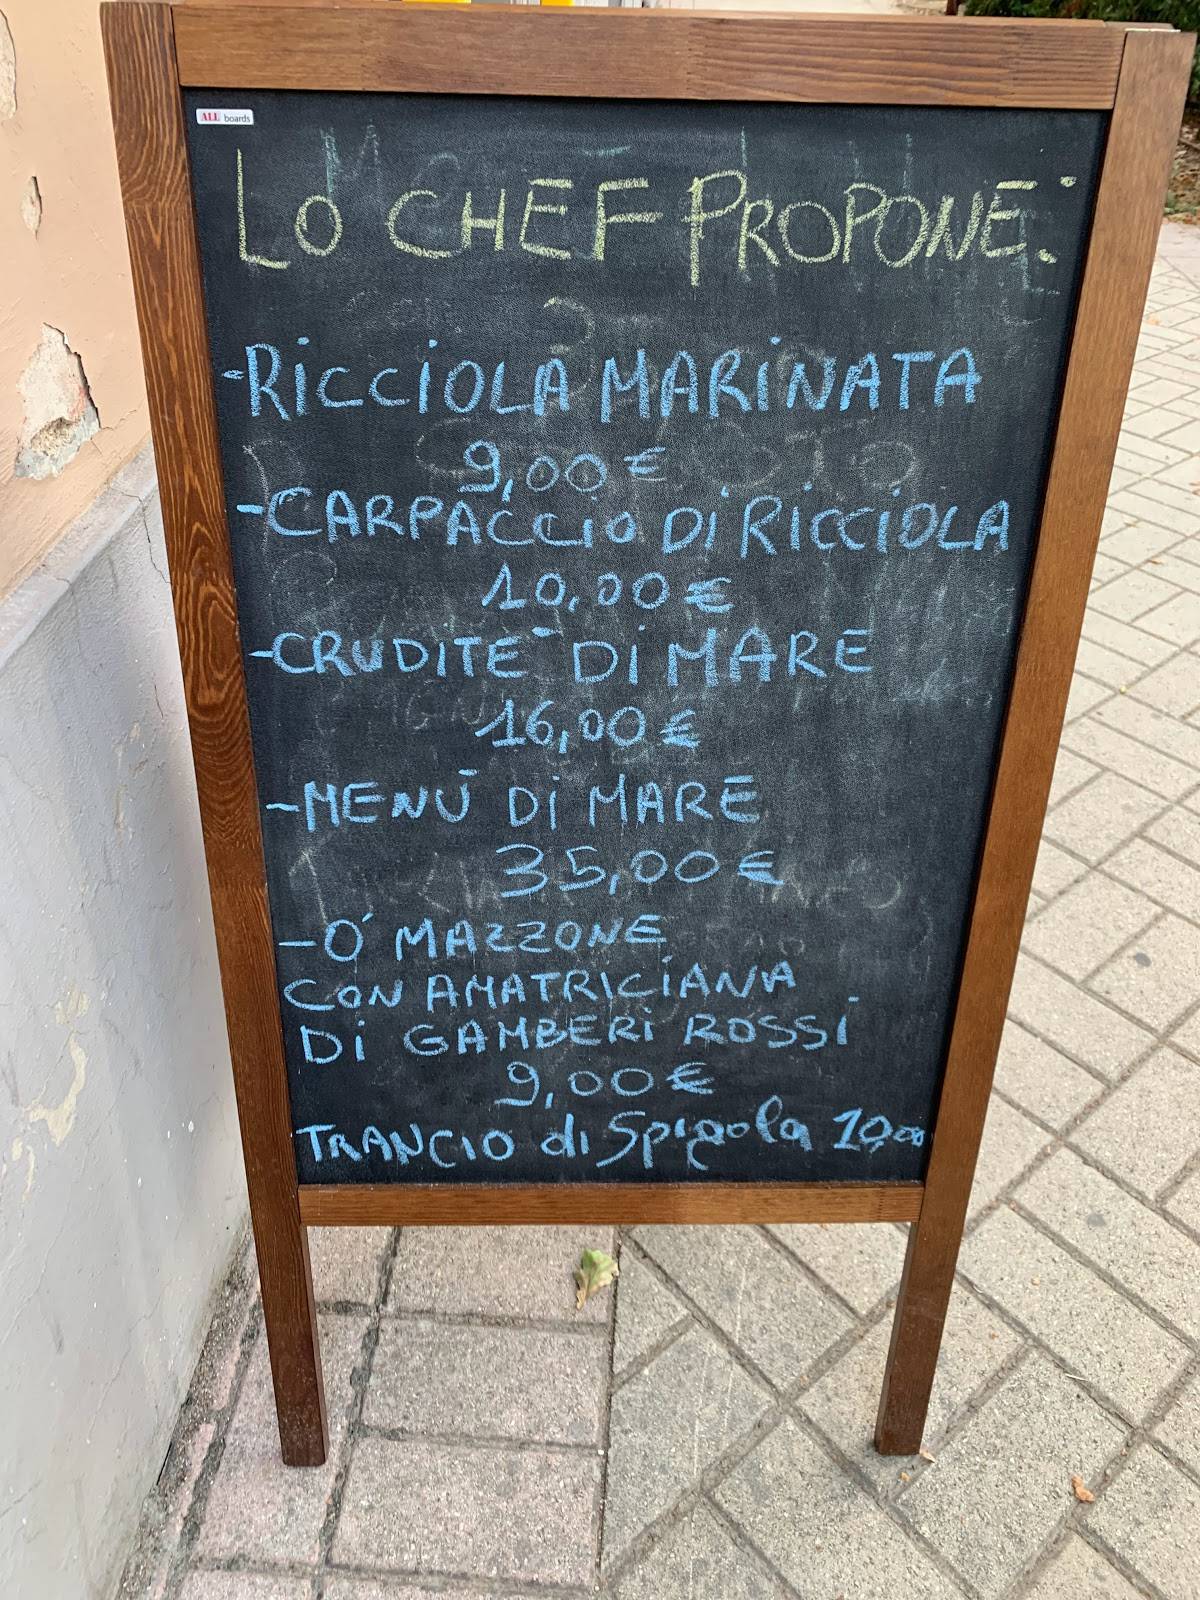 ALL boards
LO CHEF PROPONE:
-RICCIOLA MARINATA
9,00 €
-CARPACCIO DI RICCIOLA
10,00 €
-CRUDITE' DI MARE
16,00 €
-MENÙ DI MARE
35,00 €
-O' MAZZONE
CON AMATRICIANA
DI GAMBERI ROSSI
9,00 €
TRANCIO di Spigola 10,00